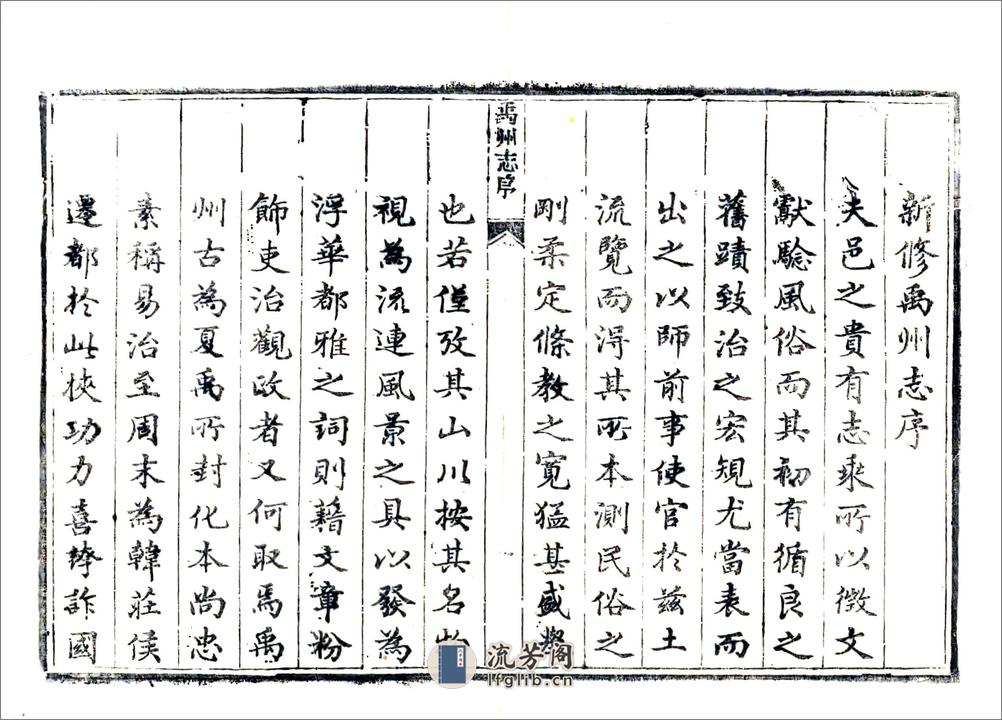 新修禹州志序
夫邑之貴有志乘所以徵文
獻驗風俗而其初有循良之
舊蹟致治之宏規尤當表而
出之以師前事使官於茲土
流覽而得其所本測民俗之
剛柔定條教之寬猛甚盛舉
禹州志序
也若僅攷其山川按其名
視為流連風景之具以發為
浮華都雅之詞則藉文章粉
飾吏治觀政者又何取焉禹
州古為夏禹所封化本尚忠
素稱易治至周末為韓莊侯
遷都於此狹功力喜詐國
流芳阁
lfglib.cn